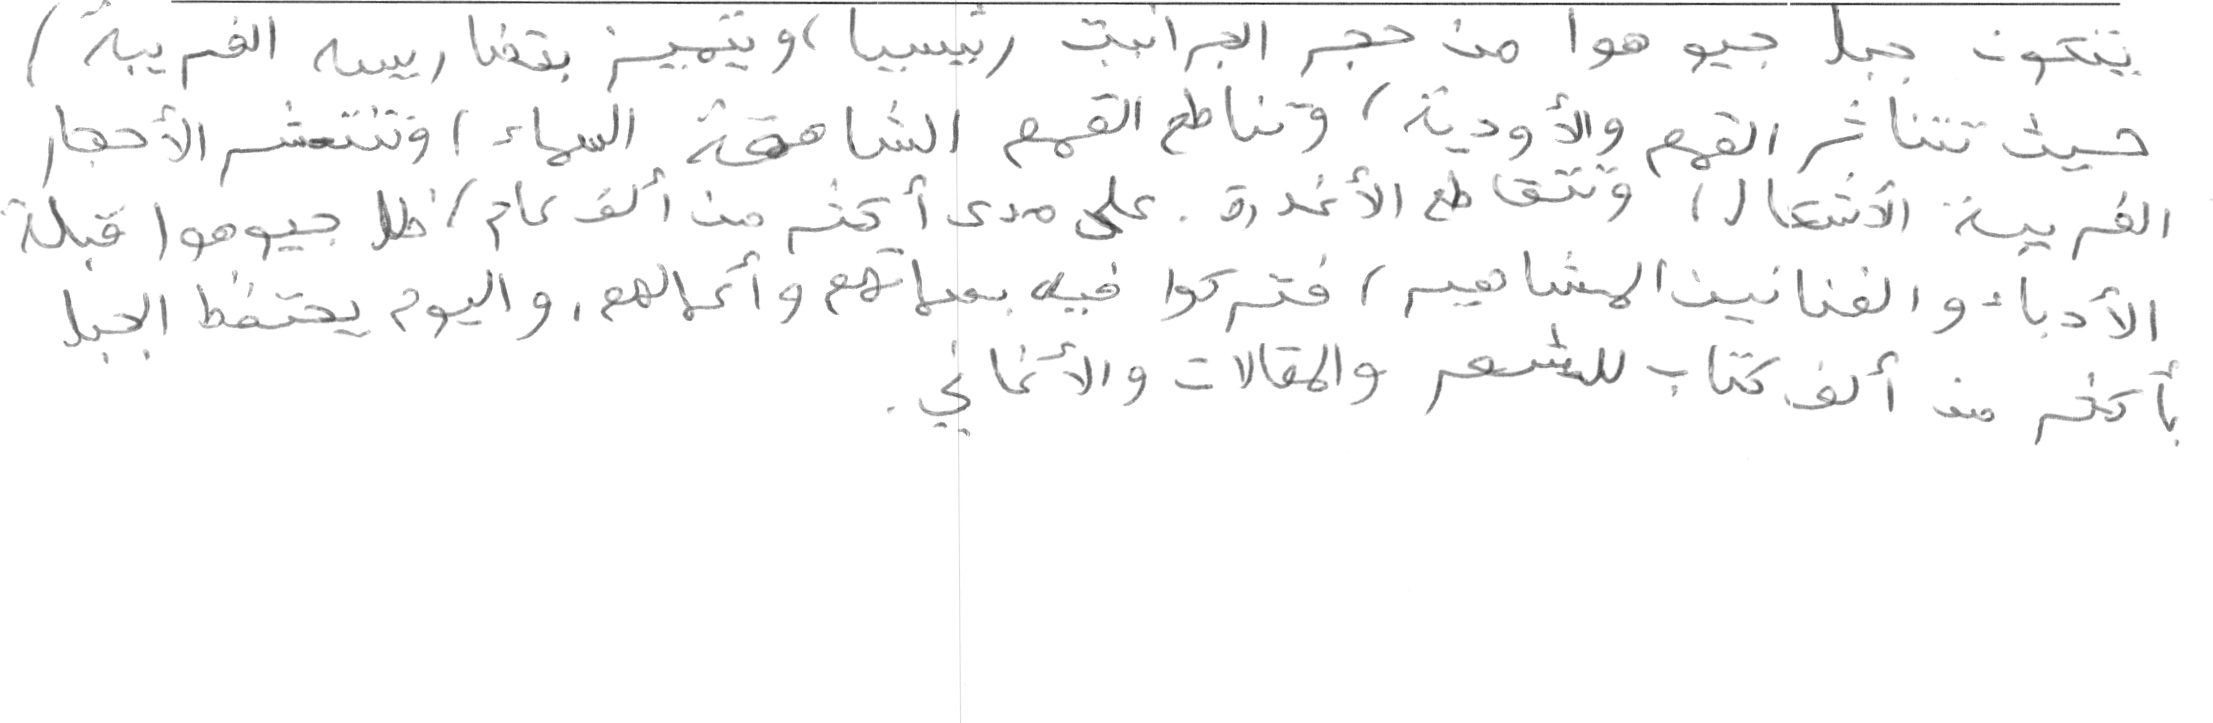 يتكون جبل جيوهوا من حجر الجرانيت رئيسيا، ويتميز بتضاريسه الغريبة،
حيث تتناثر القمم والأودية، وتناطح القمم الشاهقة السماء، وتنتشر الأحجار
الغريبة الأشكال، وتتقاطع الأغدرة. على مدى أكثر من ألف عام، ظل جيوهوا قبلة
الأدباء والفنانين المشاهير، فتركوا فيه بصماتهم وأعمالهم، واليوم يحتفظ الجبل
بأكثر من ألف كتاب للشعر والمقالات والأغاني.